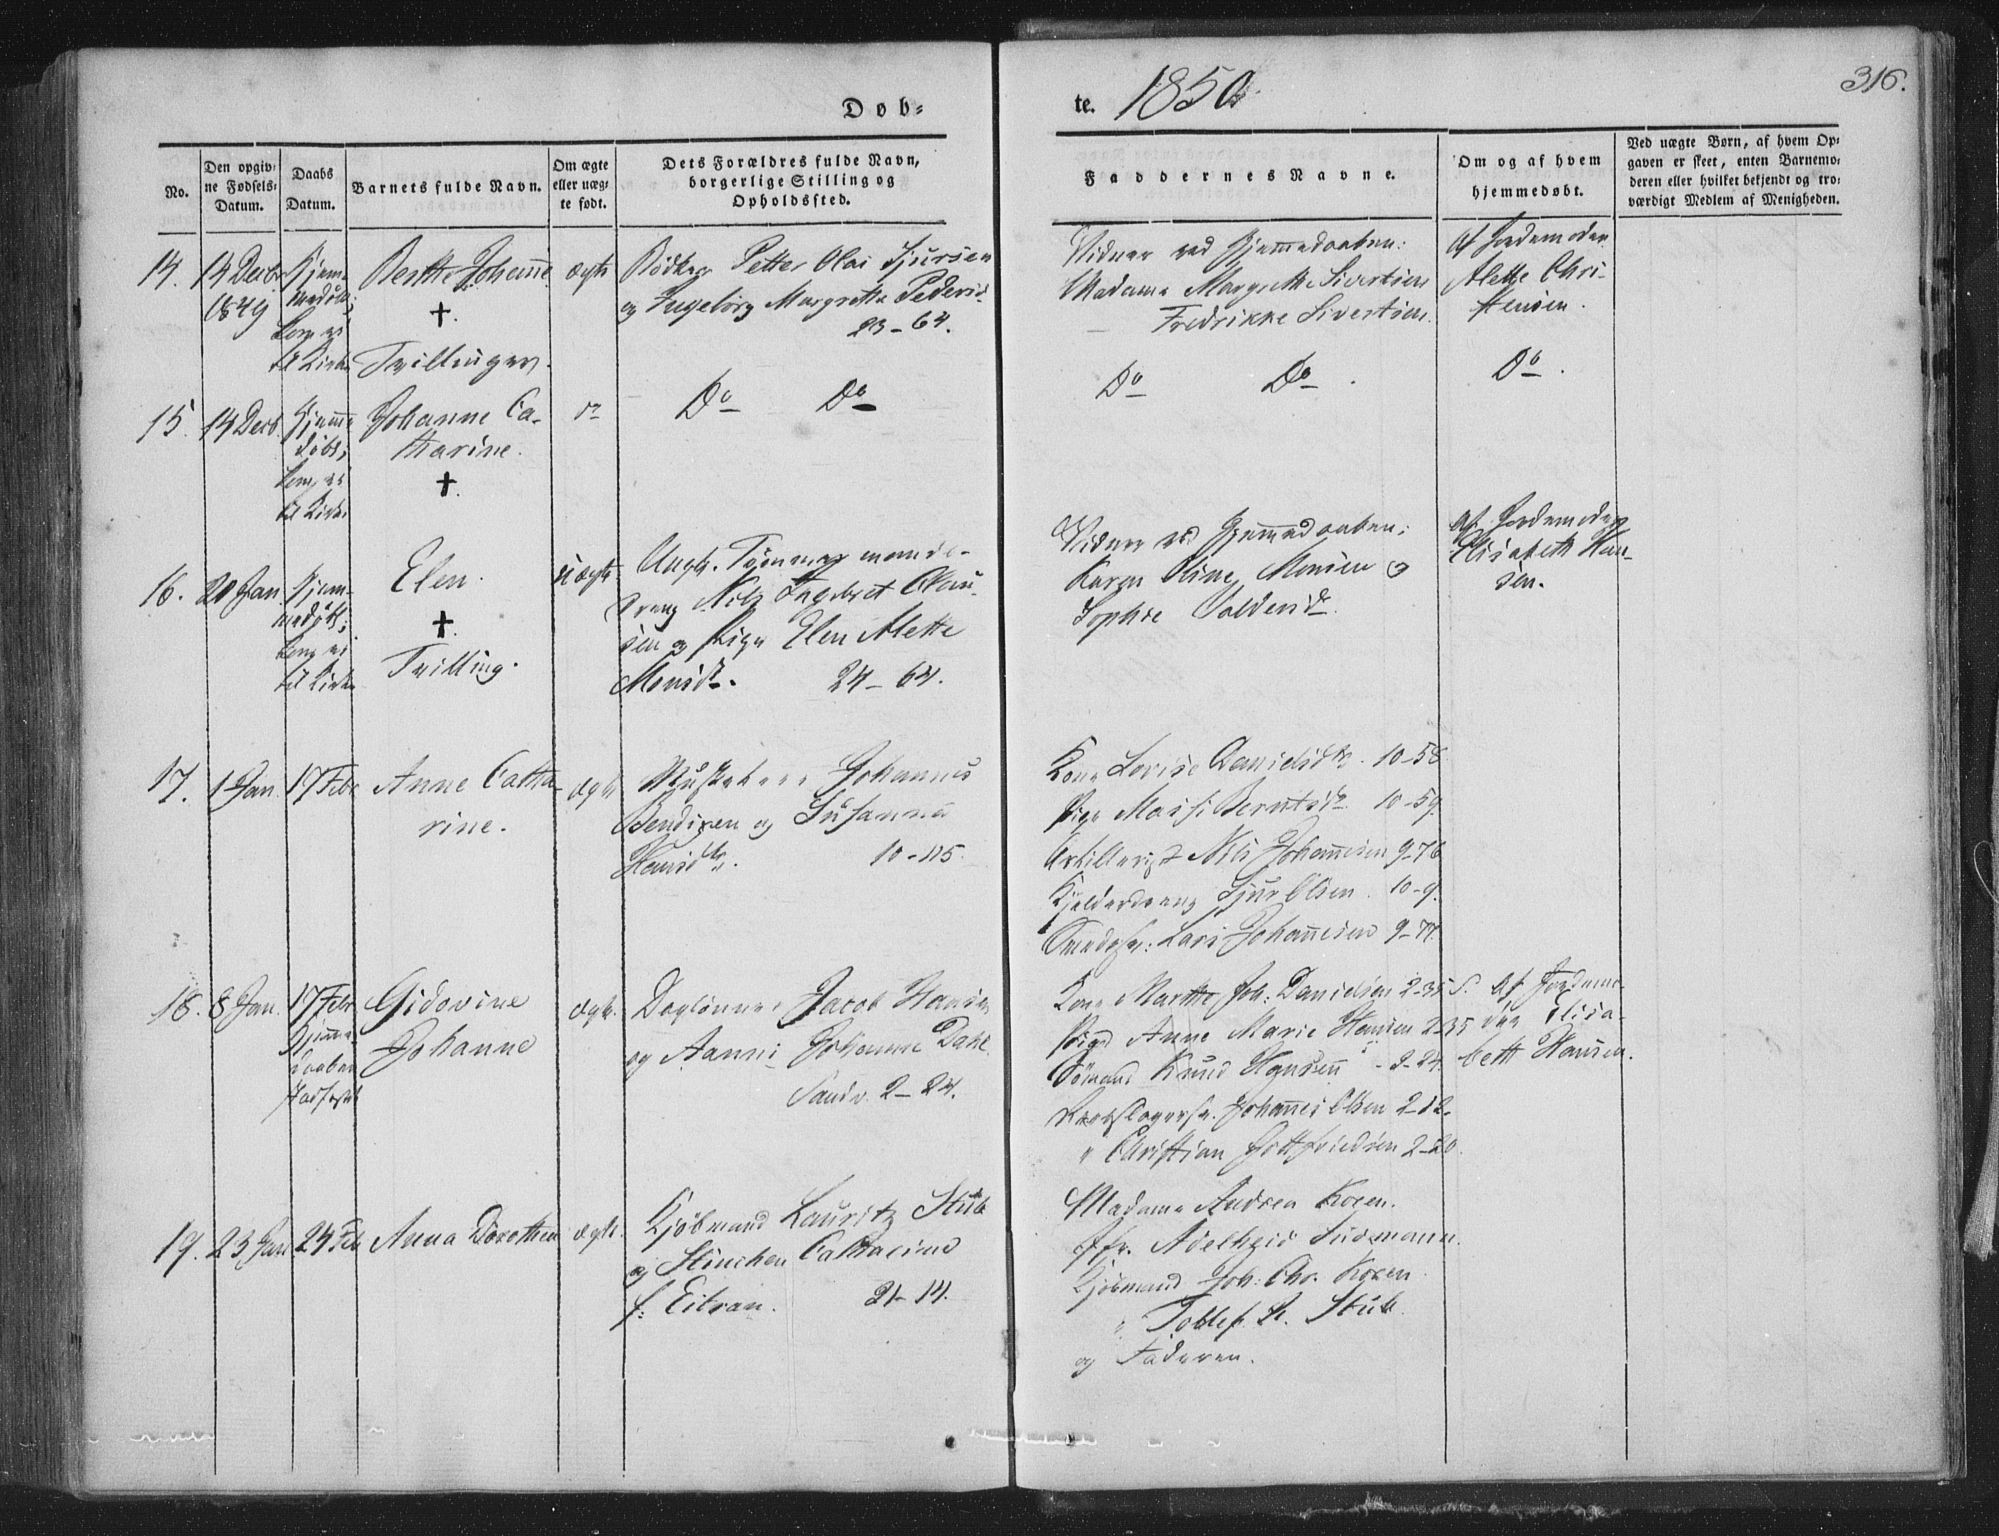 Døb-
te. 1850
316.
No.
Den opgiv-
ne Fødsels-
Datum.
Daabs
Datum.
Barnets fulde Navn.
Om ægte
eller uæg-
te født.
Dets Forældres fulde Navn,
borgerlige Stilling og
Opholdssted.
Faddernes Navne.
Om og af hvem
hjemmedøbt.
Ved uægte Børn, af hvem Op-
gaven er skeet, enten Barnemo-
deren eller hvilket bekjendt og tro-
værdigt Medlem af Menigheden.
14.
14 Decbr
1849
Hjem-
medøbt;
kom ei
til Kirke
Berthe Johanne
✝.
Tvillinger.
ægte
Bødker Petter Olai Sjursen
og Ingeborg Margrethe Pedersd.
23-64.
Vidner ved Hjemmedaaben:
Madame Margrethe Sivertsen
Fredrikke Sivertsen.
Af Jordemoder
Alette Chri-
stensen.
15.
14 Decb.
Hjemme
døbt;
kom ei
til Kirke
Johanne Ca-
tharine.
✝.
do
Do Do
Do Do.
Do.
16.
20 Jan.
Hjem-
medøbt;
kom ei
til Kirke
Elen.
✝.
Tvilling.
uægte
Ungk. Tømmermands-
dreng Nils Ingebret Olau-
sen og Pige Elen Alette
Monsdr. 24-64.
Vidner ved Hjemmedaaben:
Karen Oline Monsen og
Sophie
Af Jordemoder
Elisabeth Han-
sen.
17.
1 Jan.
17 Febr
Anne Catha-
rine.
ægte
Musketeer Johannes
Bendixen og Susanna
Hansdtr. 10-115.
Kone Lovise Danielsdtr. 10-58
Pige Massi Berntsdr. 10-59.
Artillerist Nils Johannesen 9-76
Kjelderdreng Sjur Olsen. 10-9.
Smedesv: Lars Johannesen 9-77.
18.
8 Jan.
17 Febr
Hjemme-
daaben
stadfæstet
Gidovine
Johanne
ægte.
Daglønner Jacob Hansen
og Aanni Johanne Dahl
Sandv. 2-24.
Kone Marthe Joh: Danielsen 2-35
Pige Anne Marie Hansen 2-35
Sømand Knud Hansen - 2-24.
Rebslagersv. Johannes Olsen 2-12.
" Christian Gottfriedsen 2-20.
Af Jordemo-
der Elisa-
beth Hansen.
19.
23 Jan
24 Feb
Anna Dorothea
ægte.
Kjøbmand Lauritz Stub
og Stinchen Catharine
f: Eitran. 21-14.
Madame Andrea Koren.
Jfr. Adelheid Sudmann.
Kjøbmand Joh: Chr. Koren.
" Tollef A. Stub.
og Faderen.